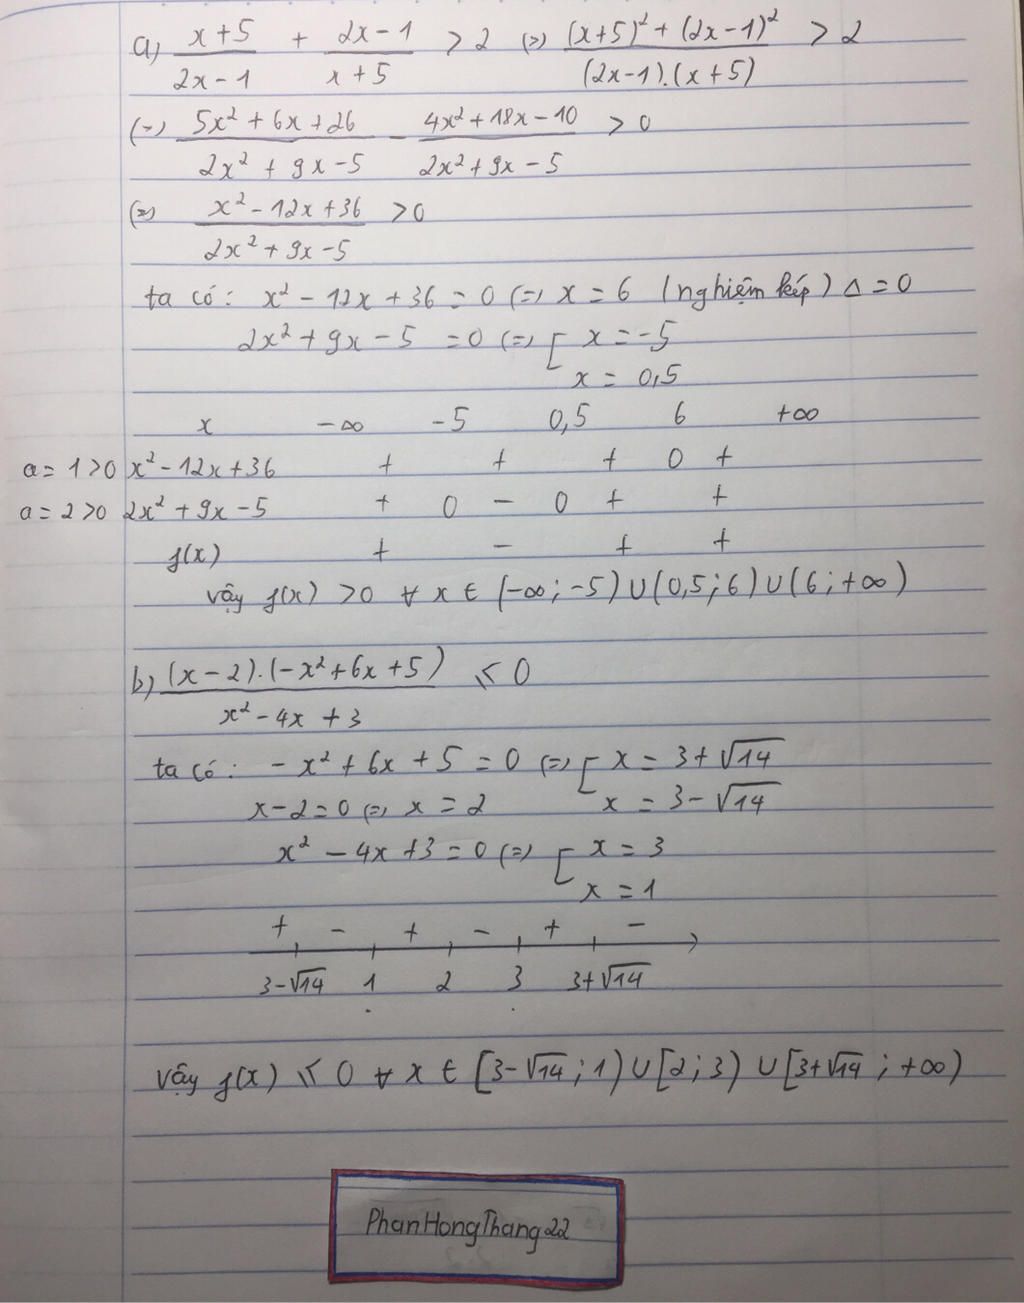 a) (x+5)/(2x-1) + (2x-1)/(x+5) > 2 (=) ((x+5)² + (2x-1)²)/((2x-1).(x+5)) > 2
(=) (5x² + 6x + 26)/(2x² + 9x - 5) - (4x² + 18x - 10)/(2x² + 9x - 5) > 0
(=) (x² - 12x + 36)/(2x² + 9x - 5) > 0
ta có: x² - 12x + 36 = 0 (=) x = 6 (nghiệm kép) Δ = 0
2x² + 9x - 5 = 0 (=) [ x = -5
x = 0,5
x -∞ -5 0,5 6 +∞
a = 1 > 0 x² - 12x + 36 + + + 0 +
a = 2 > 0 2x² + 9x - 5 + 0 - 0 + +
f(x) + - + +
vậy f(x) > 0 ∀ x ∈ (-∞; -5) ∪ (0,5; 6) ∪ (6; +∞)
b) ((x-2).(-x² + 6x + 5))/(x² - 4x + 3) ≤ 0
ta có: -x² + 6x + 5 = 0 (=) [ x = 3 + √14
x - 2 = 0 (=) x = 2 x = 3 - √14
x² - 4x + 3 = 0 (=) [ x = 3
x = 1
+ - + - + -
3-√14 1 2 3 3+√14
vậy f(x) ≤ 0 ∀ x ∈ [3-√14; 1) ∪ [2; 3) ∪ [3+√14; +∞)
PhanHongThang22